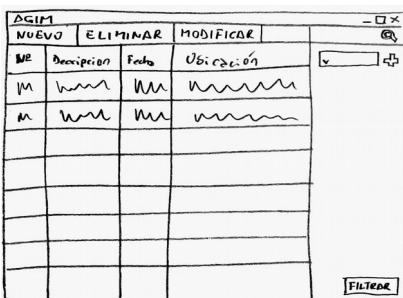 AGIM
NUEVO ELIMINAR MODIFICAR
Nº Descripcion Fecha Ubicación
FILTRAR